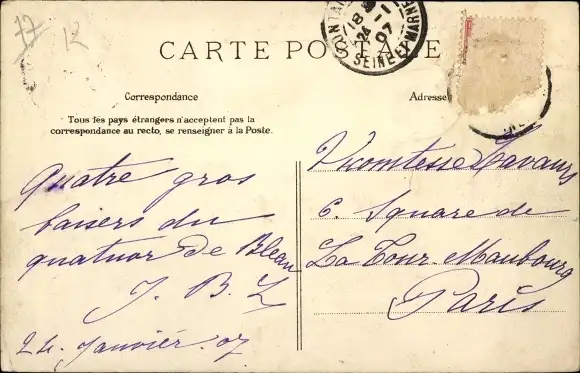 77
12
CARTE POSTALE
18
24 -1
07
SEINE ET MARNE
Correspondance
Adresse
Tous les pays étrangers n'acceptent pas la
correspondance au recto, se renseigner à la Poste.
Quatre gros
baisers du
quatuor de Bleau
J. B. L
24. Janvier. 07
Vicomtesse
6. Square de
La Tour-Maubourg
Paris